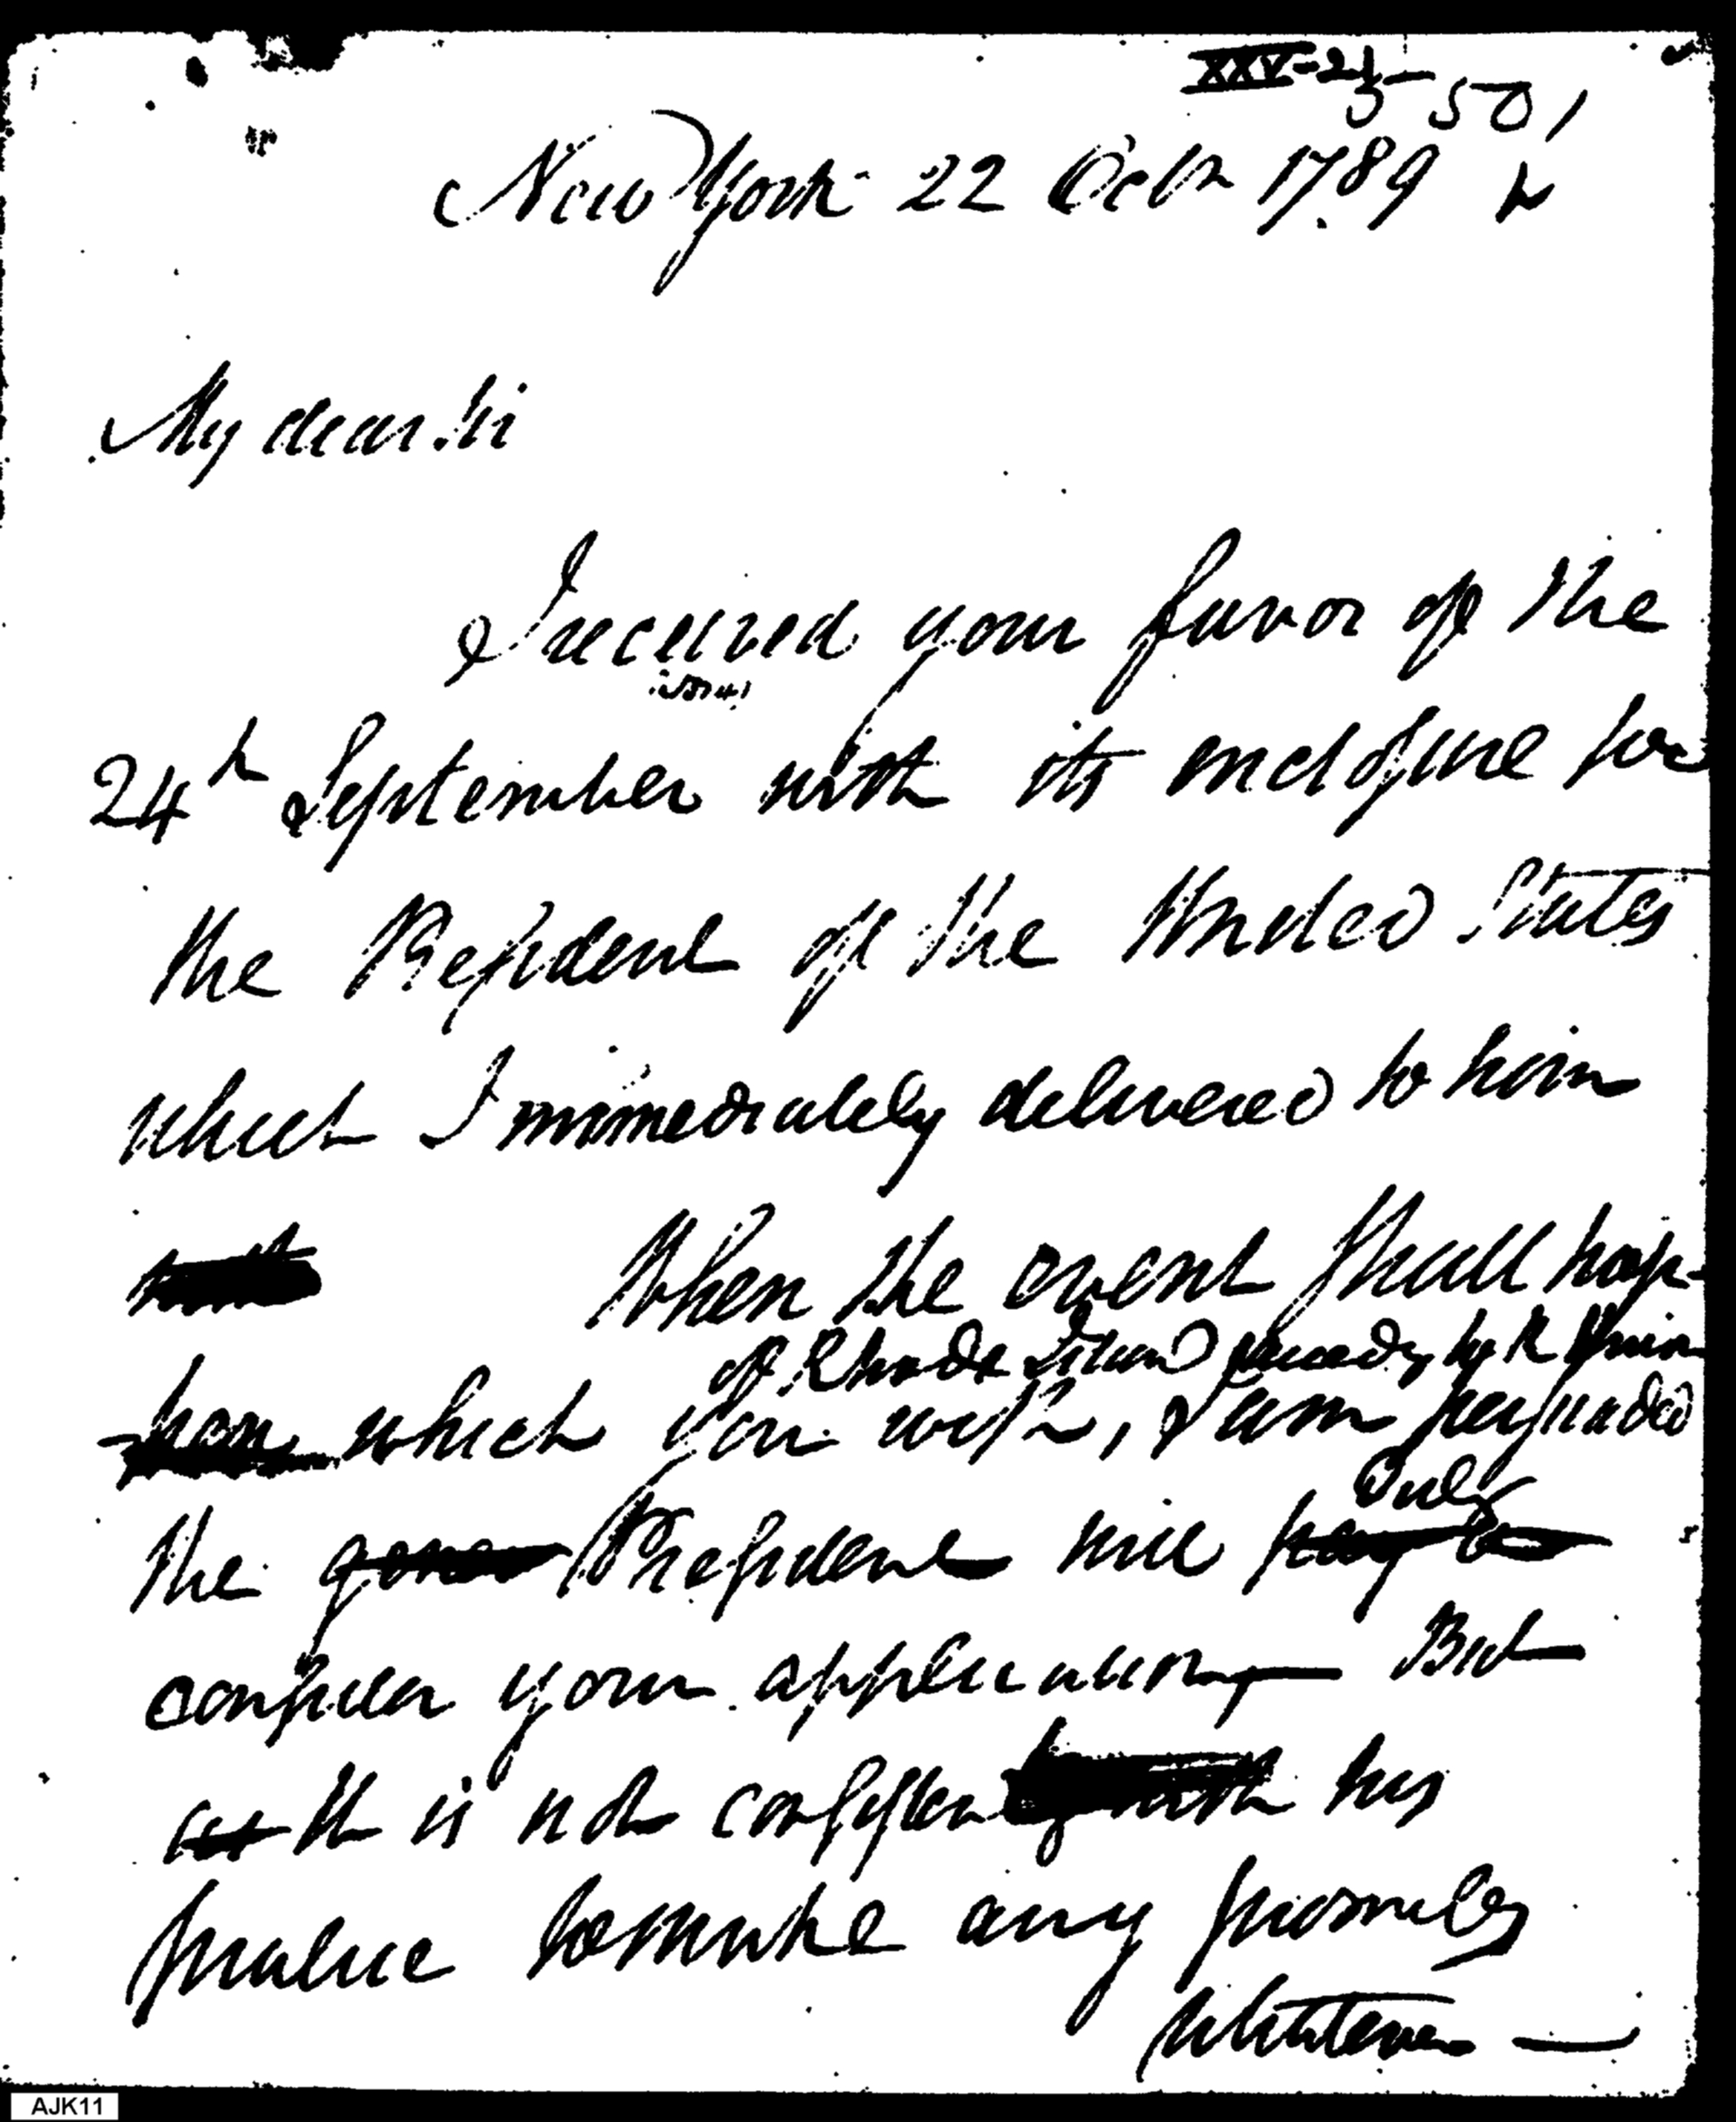 XXV-23-501
New York 22 Octr 1789
My dear Sir
I received your favor of the
24h September with its enclosure for
the President of the United States
which I immediately delivered to him
When the event shall hap-
of Rhode Island
pen which you wish, I am persuaded
duly
the gover President will pay to
consider your application— But
as it is not consistent with his
practice to make any promises
Whatever —
AJK11